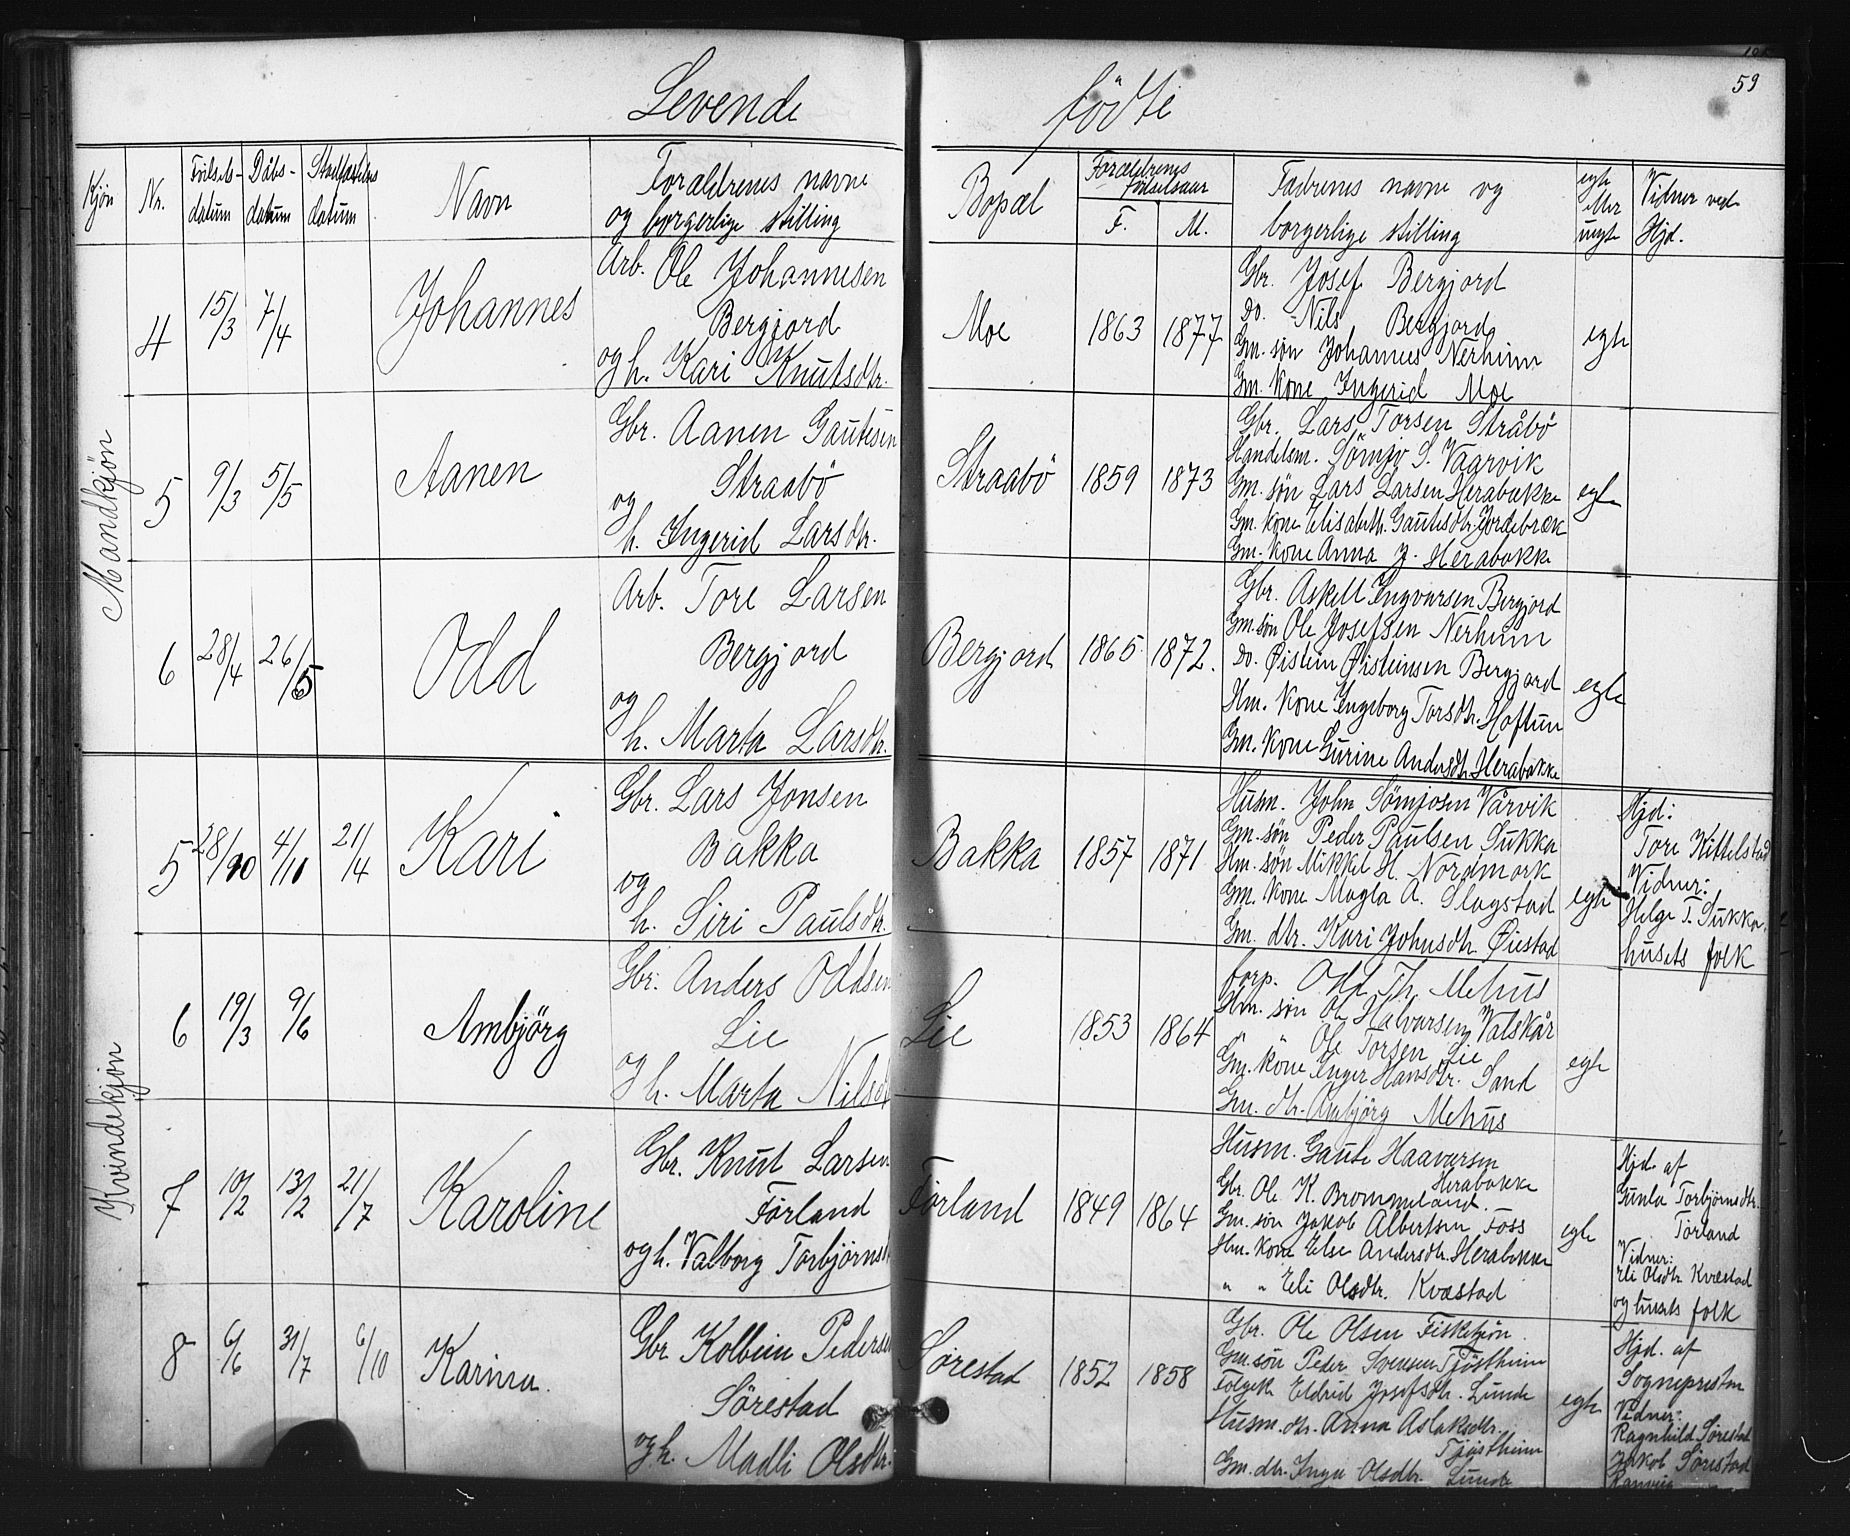 59
Levende fødte
Kjön
Nr.
Födsels-
datum
Dåbs-
datum
Stadfæstelses
datum
Navn
Forældrenes navne
og borgerlige stilling
Bopæl
Forældrenes
födselsaar
F.
M.
Fadrenes navne og
borgerlige stilling
egte
eller
uegte
Vidner ved
Hjd.
Mandkjøn
4
15/3
7/4
Johannes
Arb. Ole Johannesen
Bergjord
og h. Kari Knutsdtr.
Moe
1863
1877
Gbr. Josef Bergjord
Do. Nils Bergjord
Gm. søn Johannes Nerhim
Gm. kone Ingerid Moe
egte
5
9/3
5/5
Aanen
Gbr. Aanen Gautesen
Straabö
og
h. Ingerid Larsdtr.
Straabö
1859
1873
Gbr. Lars Torsen Stråbö
Handelsm. Sömjo S. Vaarvik
Gm. sön Lars Larsen Herabakke
Gm. kone Elisabeth. Gautesdtr. Jordebræk
Gm. kone Anna J. Herabakke
egte
6
28/4
26/5
Odd
Arb. Tore Larsen
Bergjord
og
h. Marta Larsdtr.
Bergjord
1865
1872.
Gbr. Askell Ingvarsen Bergjord
Gm. sön Ole Josefsen Nerhim
Do. Øistein Øisteinsen Bergjord
Hm. kone Ingeborg Torsdtr. Hoftun
Gm. kone Gurine Andersdtr. Herabakke
egte
Kvindekjøn
5
28/10
4/11
21/4
Kari
Gbr. Lars Jonsen
Bakka
og
h. Siri Paulsdtr.
Bakka
1857
1871
Husm. John Sömjosen Vårvik
Gm. sön Peder Paulsen Sukka
Hm. søn Mikkel H. Nordmork
Gm. kone Magla A. Slogstad
Gm. dtr. Kari Johnsdtr. Øiestad
egte
Hjd:
Tore Kittelstad
Vidner:
Helge T. Sukka
husets folk
6
19/3
9/6
Ambjörg
Gbr. Anders Oddsen
Lie
og h. Marta Nilsdt
Lie
1853
1864
Corp. Odd Th. Mehus
Hm. søn Ole Halvorsen Valskår
" " Ole Torsen Lie
Gm. kone Inger Hansdtr. Sand
Gm. dtr. Ambjörg Mehus
egte
7
10/2
13/2
21/7
Karoline
Gbr. Knut Larsen
Förland
og h. Valborg Torbjørnsd
Förland
1849
1864
Husm. Gaute Haavorsen
Herabakke
Gbr. Ole K. Brommeland.
Gm. søn Jakob Albertsen Foss
Hm. kone Else Andersdtr. Herabakke
" " Eli Olsdtr. Kvæstad
egte
Hjd. af
Gunla Torbjörnsdtr.
Förland
Vidner:
Eli Olsdtr. Kvæstad
og husets folk
8
6/6
31/7
6/10
Karina.
Gbr. Kolbein Pedersen
Sörestad
og h. Madli Olsdtr.
Sörestad
1852
1858
Gbr. Ole Olsen Fisketjön.
Gm. søn Peder Svensen Tjöstheim
Folgek. Eldrid Josefsdtr. Lunde
Husm. dtr. Anna Aslaksdtr.
Tjöstheim
Gm. dtr. Inga Olsdtr. Lunde
egte
Hjd. af
Sognepresten
Vidner:
Ragnhild Sörestad
Jakob Sörestad